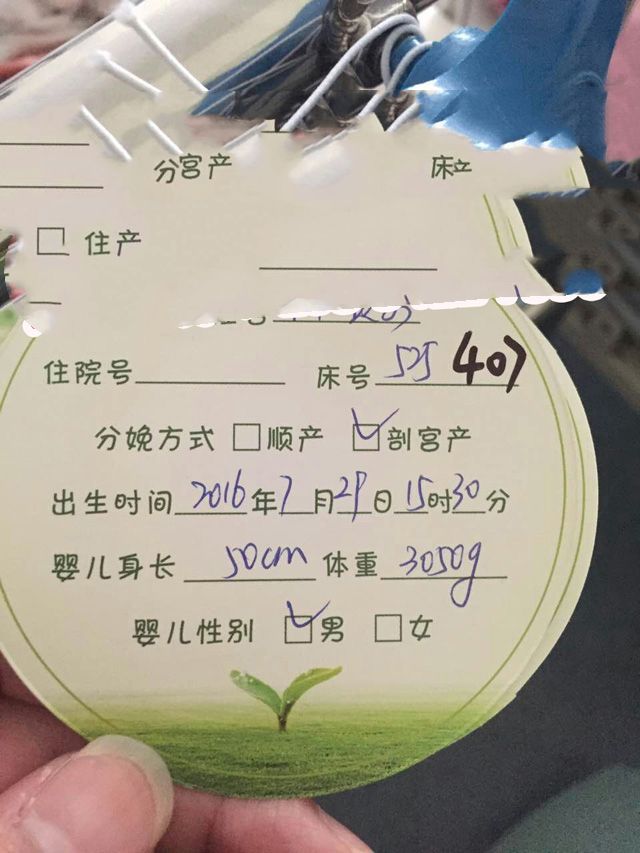 分宫产 床立
□ 住产
住院号 床号 525 407
分娩方式 □顺产 ☑剖宫产
出生时间 2016年7月29日15时30分
婴儿身长 50cm 体重 3050g
婴儿性别 ☑男 □女